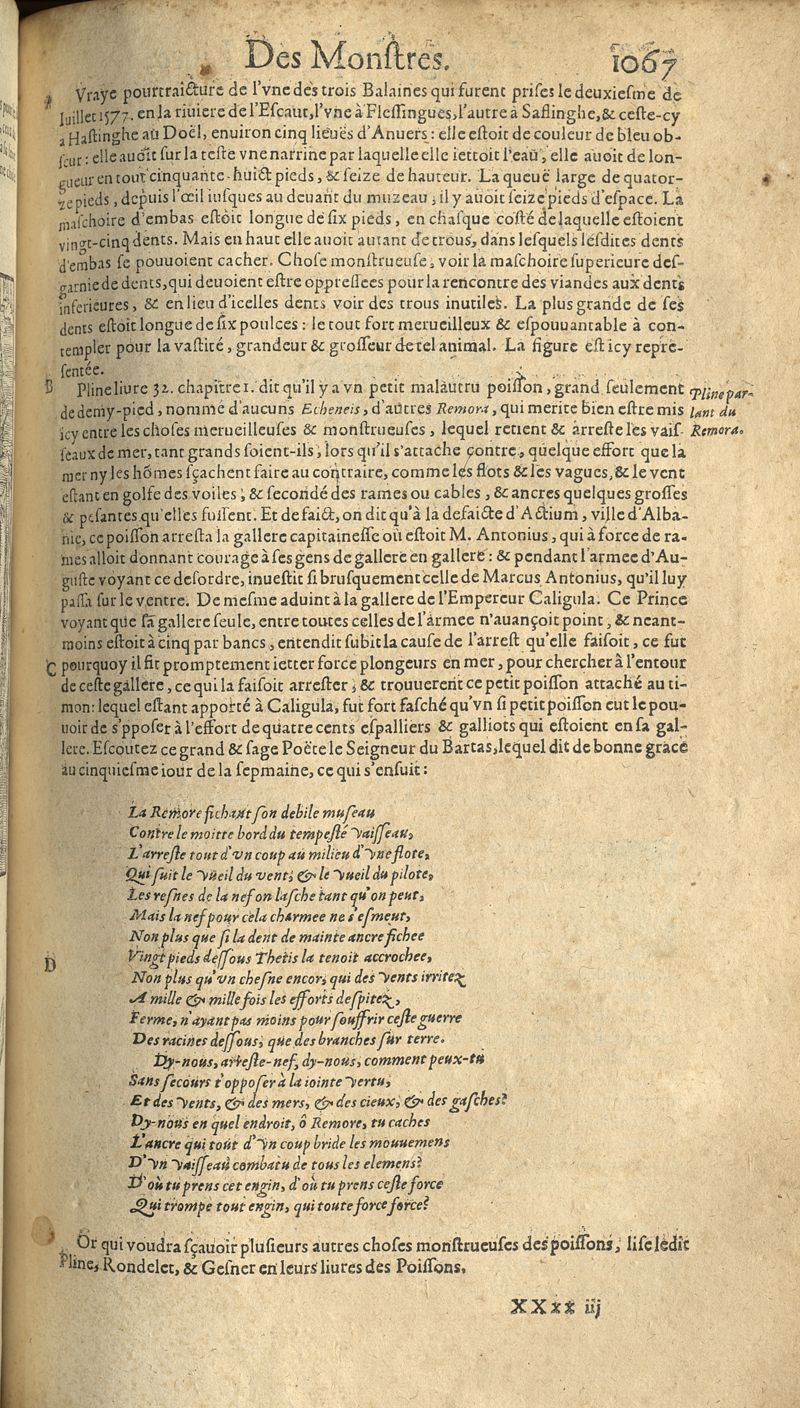 Des Monſtres. 1067
Vraye pourtraicture de l'vne des trois Balaines qui furent priſes le deuxieſme de
Iuillet 1577. en la riuiere de l'Eſcaut, l'vne à Fleſſingues, l'autre à Saflinghe, & ceſte-cy
à Haſtinghe au Doël, enuiron cinq lieuës d'Anuers : elle eſtoit de couleur de bleu ob-
ſcur : elle auoit ſur la teſte vne narrine par laquelle elle iettoit l'eau, elle auoit de lon-
gueur en tout cinquante-huict pieds, & ſeize de hauteur. La queuë large de quator-
ze pieds, depuis l'œil iuſques au deuant du muzeau, il y auoit ſeize pieds d'eſpace. La
maſchoire d'embas eſtoit longue de ſix pieds, en chaſque coſté de laquelle eſtoient
vingt-cinq dents. Mais en haut elle auoit autant de trous, dans leſquels leſdites dents
d'embas ſe pouuoient cacher. Choſe monſtrueuſe, voir la maſchoire ſuperieure deſ-
garnie de dents, qui deuoient eſtre oppreſſees pour la rencontre des viandes aux dents
inferieures, & en lieu d'icelles dents voir des trous inutiles. La plus grande de ſes
dents eſtoit longue de ſix poulces : le tout fort merueilleux & eſpouuantable à con-
templer pour la vaſtité, grandeur & groſſeur de tel animal. La figure eſt icy repre-
ſentée.
B Pline liure 32. chapitre 1. dit qu'il y a vn petit malautru poiſſon, grand ſeulement
Pline par-
de demy-pied, nommé d'aucuns Echeneis, d'autres Remora, qui merite bien eſtre mis
lant du
icy entre les choſes merueilleuſes & monſtrueuſes, lequel retient & arreſte les vaiſ-
Remora.
ſeaux de mer, tant grands ſoient-ils, lors qu'il s'attache contre, quelque effort que la
mer ny les hõmes ſçachent faire au contraire, comme les flots & les vagues, & le vent
eſtant en golfe des voiles, & ſecondé des rames ou cables, & ancres quelques groſſes
& peſantes qu'elles fuſſent. Et de faict, on dit qu'à la defaicte d'Actium, ville d'Alba-
nie, ce poiſſon arreſta la gallere capitaineſſe où eſtoit M. Antonius, qui à force de ra-
mes alloit donnant courage à ſes gens de gallere en gallere : & pendant l'armee d'Au-
guſte voyant ce deſordre, inueſtit ſi bruſquement celle de Marcus Antonius, qu'il luy
paſſa ſur le ventre. De meſme aduint à la gallere de l'Empereur Caligula. Ce Prince
voyant que ſa gallere ſeule, entre toutes celles de l'armee n'auançoit point, & neant-
moins eſtoit à cinq par bancs, entendit ſubit la cauſe de l'arreſt qu'elle faiſoit, ce fut
C pourquoy il fit promptement ietter force plongeurs en mer, pour chercher à l'entour
de ceſte gallere, ce qui la faiſoit arreſter, & trouuerent ce petit poiſſon attaché au ti-
mon: lequel eſtant apporté à Caligula, fut fort faſché qu'vn ſi petit poiſſon eut le pou-
uoir de s'ppoſer à l'effort de quatre cents eſpalliers & galliots qui eſtoient en ſa gal-
lere. Eſcoutez ce grand & ſage Poëte le Seigneur du Bartas, lequel dit de bonne grace
au cinquieſme iour de la ſepmaine, ce qui s'enſuit :
La Remore fichant ſon debile muſeau
Contre le moitte bord du tempeſté vaiſſeau,
L'arreſte tout d'vn coup au milieu d'vne flote,
Qui ſuit le vueil du vent, & le vueil du pilote,
Les reſnes de la nef on laſche tant qu'on peut,
Mais la nef pour cela charmee ne s'eſmeut,
Non plus que ſi la dent de mainte ancre fichee
D Vingt pieds deſſous Thetis la tenoit accrochee,
Non plus qu'vn cheſne encor, qui des vents irritez
A mille & mille fois les efforts deſpitez,
Ferme, n'ayant pas moins pour ſouffrir ceſte guerre
Des racines deſſous, que des branches ſur terre.
Dy-nous, arreſte-nef, dy-nous, comment peux-tu
Sans ſecours t'oppoſer à la iointe vertu,
Et des vents, & des mers, & des cieux, & des gaſches?
Dy-nous en quel endroit, ô Remore, tu caches
L'ancre qui tout d'vn coup bride les mouuemens
D'vn vaiſſeau combatu de tous les elemens?
D'où tu prens cet engin, d'où tu prens ceſte force
Qui trompe tout engin, qui toute force force?
Or qui voudra ſçauoir pluſieurs autres choſes monſtrueuſes des poiſſons, liſe ledit
Pline, Rondelet, & Geſner en leurs liures des Poiſſons.
XXxx iij